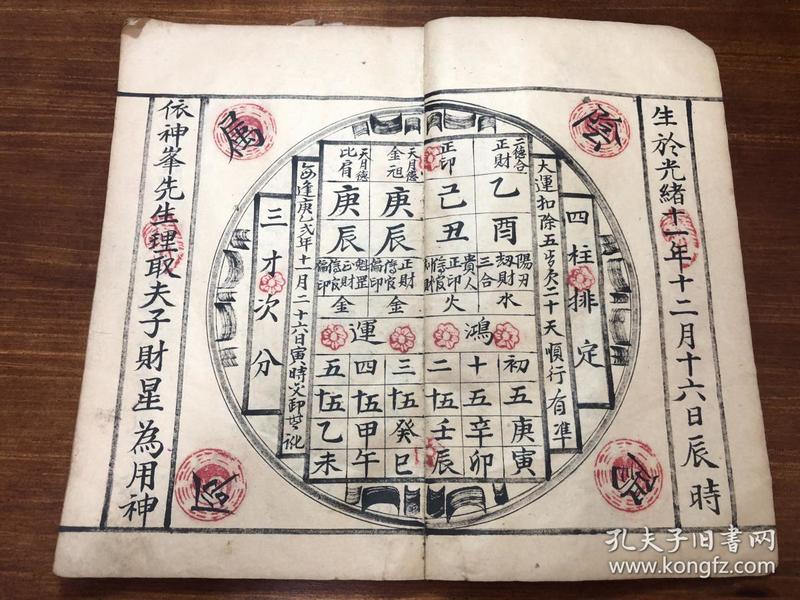 生於光緒十一年十二月十六日辰時
四柱排定
大運扣除五岁欠二十天順行有準
正財
乙酉
陽刃
劫財
三合
水
正印
己丑
貴人
正印
火
天月德
金祖
庚辰
正財
偏印
金
天月德
比肩
庚辰
魁罡
正財
偏印
金
鴻運
初五庚寅
十五辛卯
二十五壬辰
三十五癸巳
四十五甲午
五十五乙未
每逢庚乙弍年十一月二十六日寅時交卸
三才次分
依神峯先生理取夫子財星為用神
孔夫子旧书网
www.kongfz.com